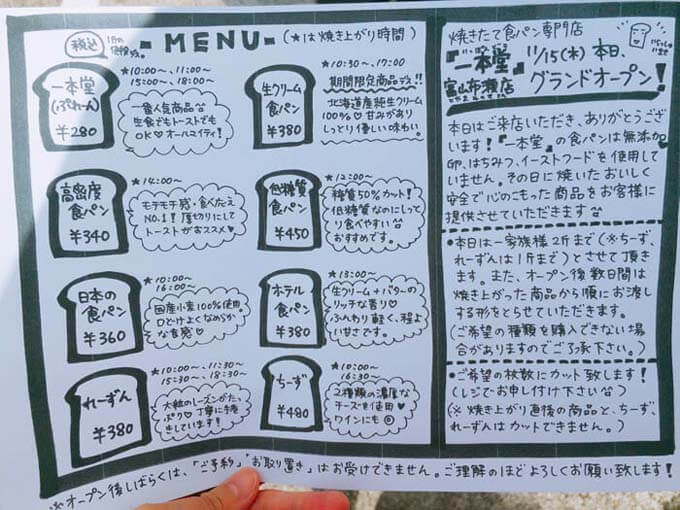 税込
1斤の価格です。
-MENU-(★は焼き上がり時間)
一本堂
(ぷれーん)
¥280
★10:00〜、11:00〜
15:00〜、18:00〜
一番人気商品
生食でもトーストでも
OK♡オールマイティ!
生クリーム
食パン
¥380
★10:30〜、17:00
期間限定商品デス!!
北海道産純生クリーム
100%♡甘みがあり
しっとり優しい味わい。
高密度
食パン
¥340
★14:00〜
モチモチ感・食べたえ
NO.1!厚切りにして
トーストがおススメ♡
低糖質
食パン
¥450
★12:00〜
糖質50%カット!
低糖質なのにしっと
り食べやすい
おすすめです。
日本の
食パン
¥360
★10:00〜
16:00〜
国産小麦100%使用。
口どけよくなめらか
な食感♡
ホテル
食パン
¥380
★13:00〜
生クリーム+バターの
リッチな香り♡
ふんわり軽く、程よ
い甘さです。
れーずん
¥380
★10:00〜、11:30〜
15:30〜、18:30〜
大粒のレーズンがた。
ぷり♡丁寧に手巻
きしています!
ちーず
¥480
★10:00〜
16:30〜
2種類の濃厚な
チーズを使用♥
ワインにも◎
焼きたて食パン専門店
『一本堂』
富山布瀬店
11/15(木)本日、
グランドオープン!
本日はご来店いただき、ありがとうござ
います!『一本堂』の食パンは無添加
卵、はちみつ、イーストフードを使用して
いません。その日に焼いたおいしく
安全で心のこもった商品をお客様に
提供させていただきます
●本日は一家族様2斤まで(※ちーず、
れーずんは1斤まで)とさせて頂き
ます。また、オープン後数日間は
焼き上がった商品から順にお渡し
する形をとらせていただきます。
(ご希望の種類を購入できない場
合がありますのでご了承下さい。)
●ご希望の枚数にカット致します!
(レジでお申し付け下さい)
(※焼き上がり直後の商品と、ちーず、
れーずんはカットできません。)
※オープン後しばらくは、「ご予約」「お取り置き」はお受けできません。ご理解のほどよろしくお願い致します!